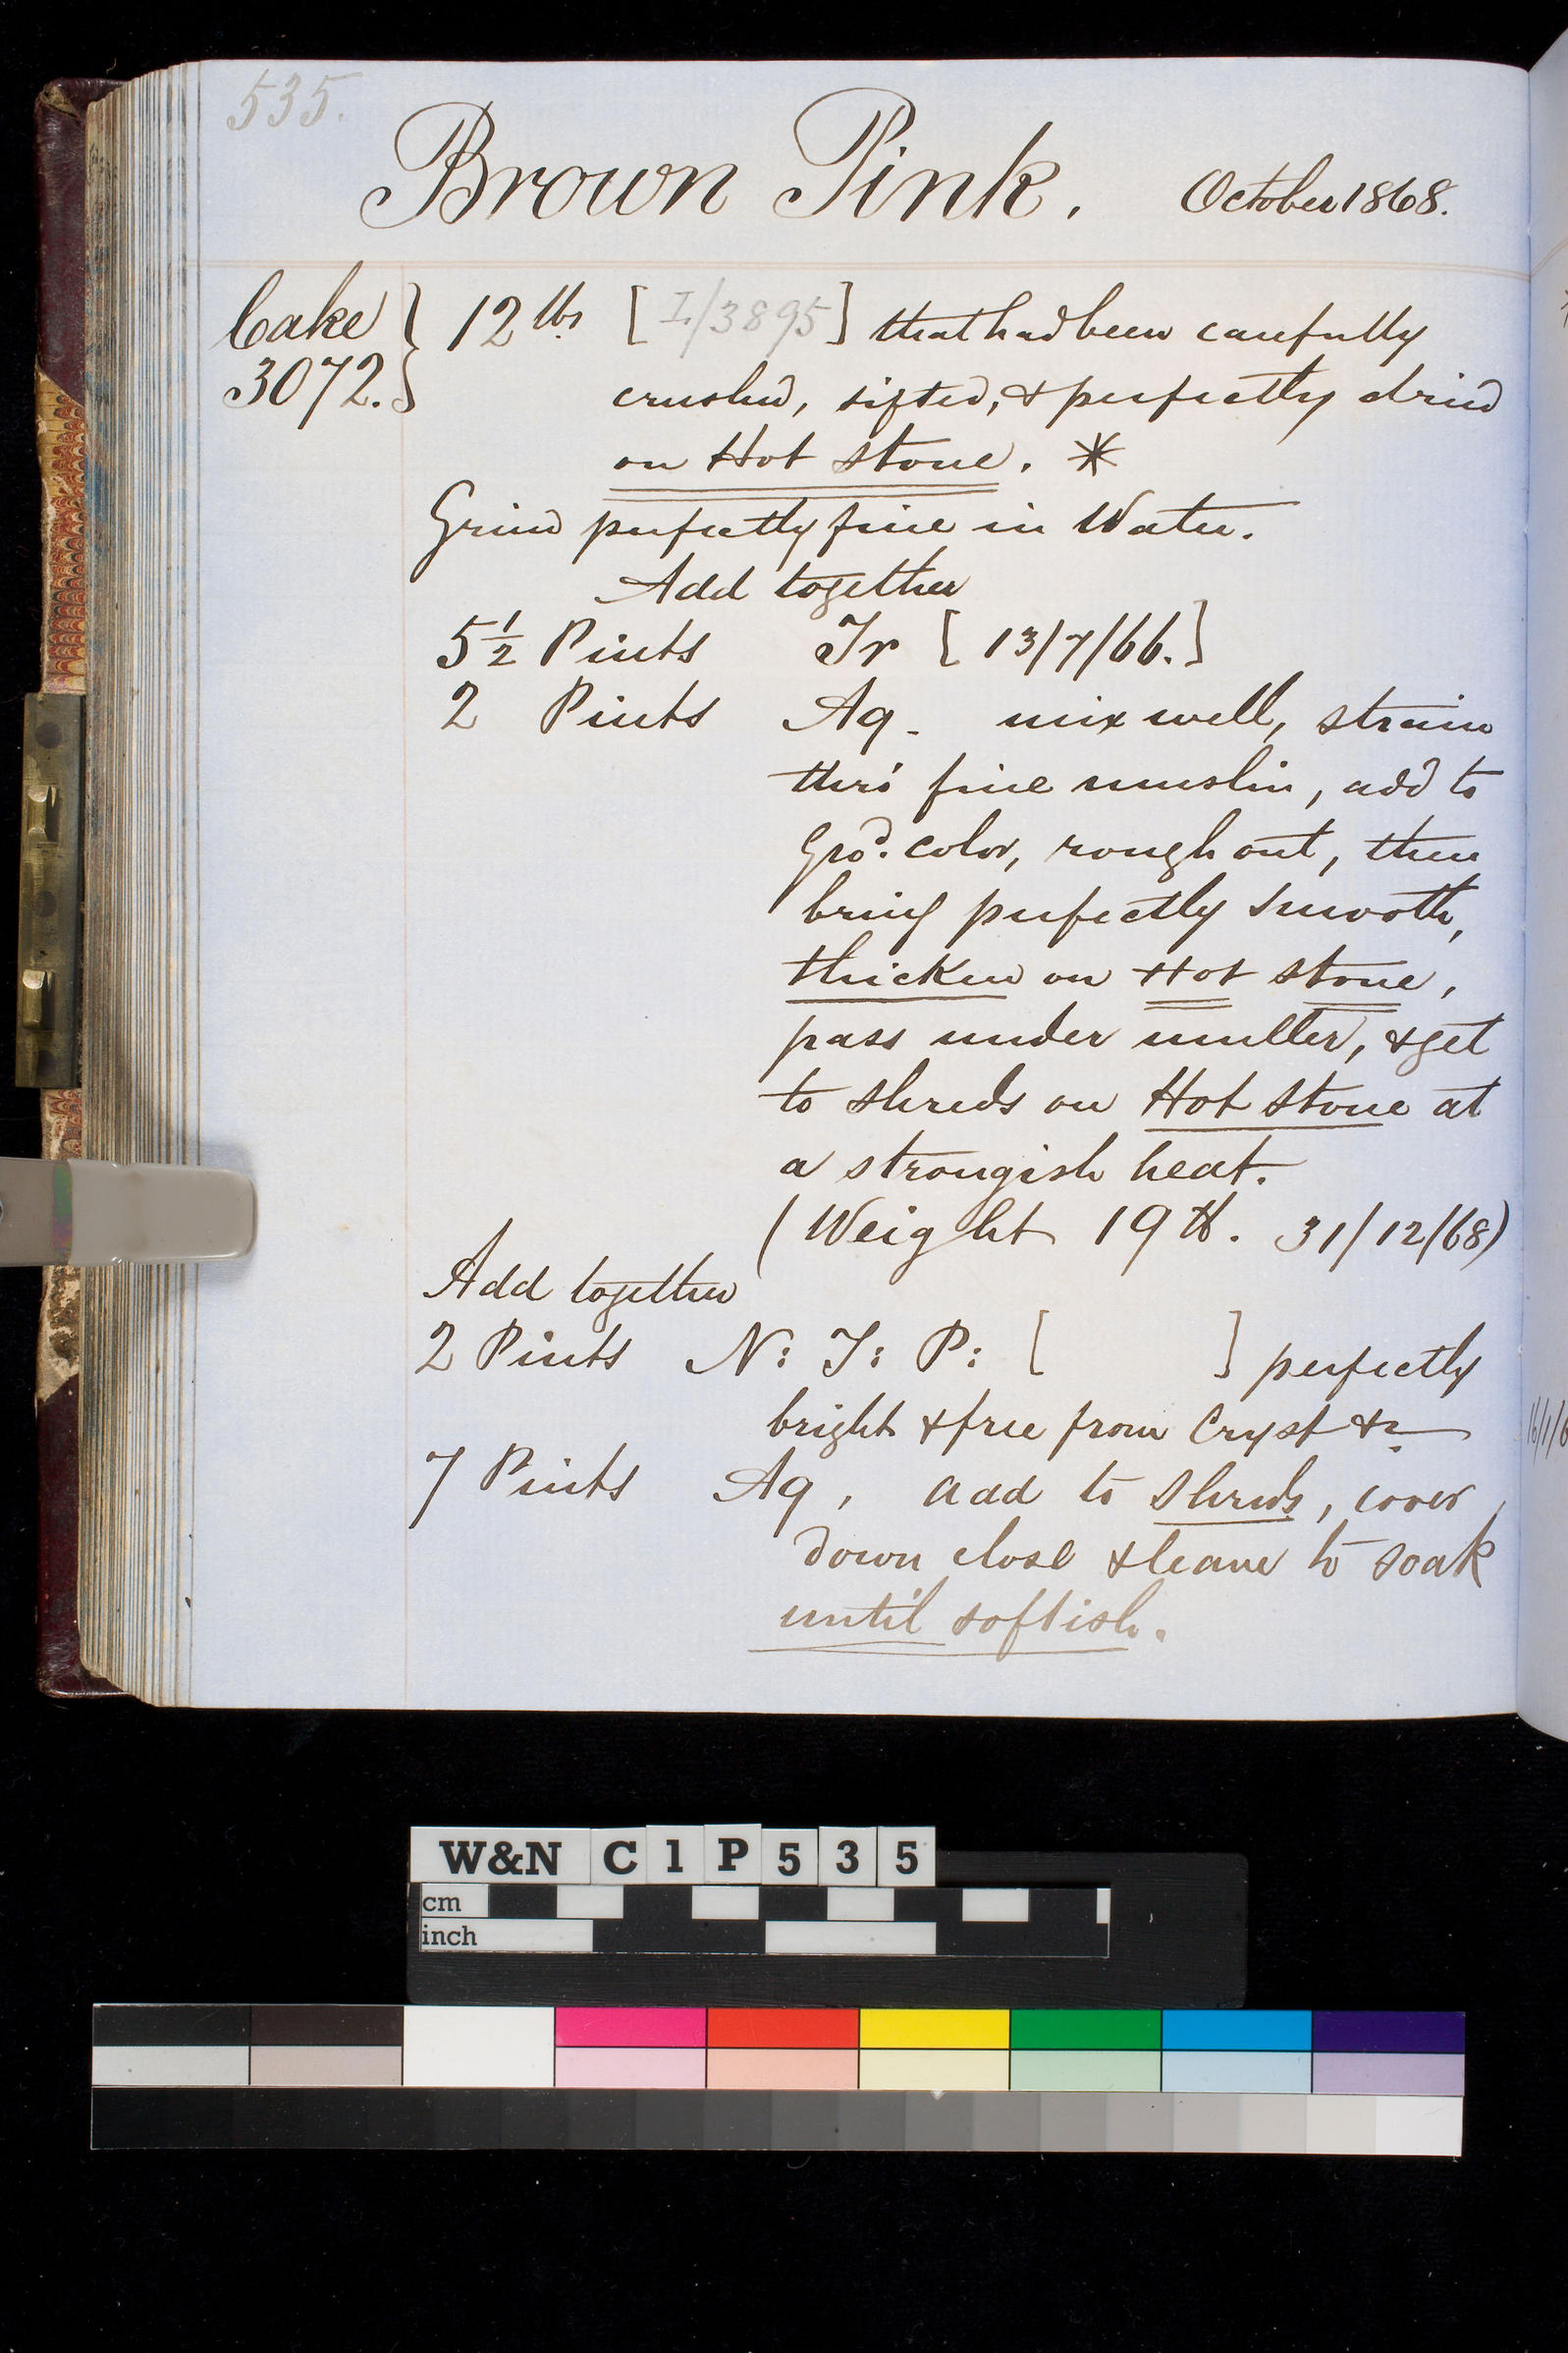 535.
Brown Pink. October 1868.
Cake } 12 lbs [ I./3895 ] that had been carefully
3072. } crushed, sifted, & perfectly dried
on Hot stone. *
Grind perfectly fine in Water.
Add together
5 1/2 Pints Tr [ 13/7/66. ]
2 Pints Aq. mix well, strain
thro' fine muslin, add to
Gro'd. color, rough out, then
bring perfectly smooth,
thicken on Hot stone,
pass under muller, & get
to shreds on Hot stone at
a strongish heat.
(Weight 19 lb. 31/12/68)
Add together
2 Pints N: T: P: [ ] perfectly
bright & free from Cryst &c
7 Pints Aq, add to Shreds, cover
down close & leave to soak
until softish.
W&N C1P535
cm
inch